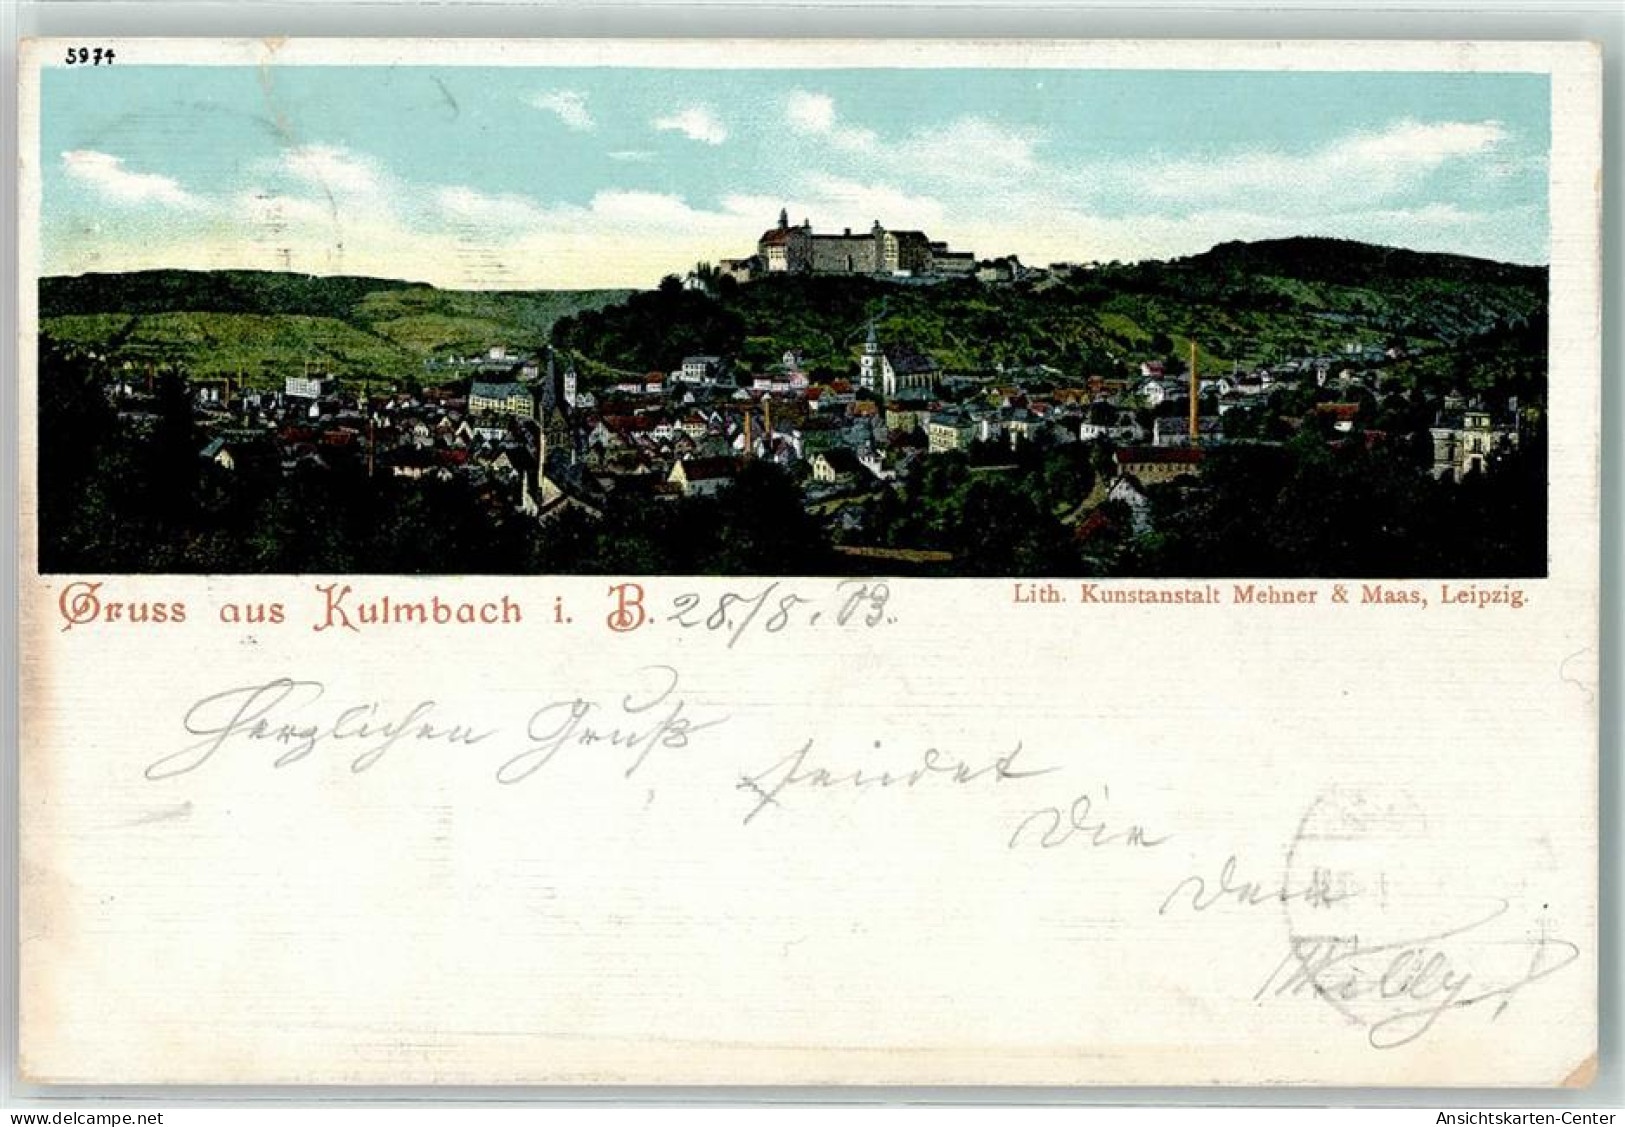 5974
Gruss aus Kulmbach i. B. 28./8. 03.
Lith. Kunstanstalt Mehner & Maas, Leipzig.
Herzlichen Gruß
sendet
Dir
Dein
Willy.
www.oldthing.de
Ansichtskarten-Center